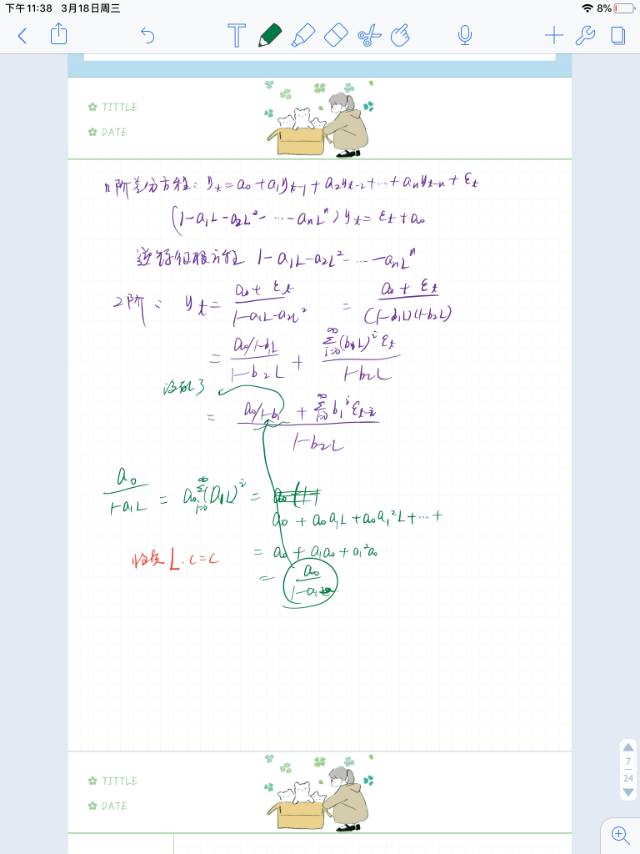 下午11:38 3月18日周三
8%
T
TITTLE
DATE
n阶差分方程: yt = a0 + a1yt-1 + a2yt-2 + ... + anyt-n + εt
(1-a1L-a2L²-...-anLⁿ)yt = εt + a0
逆特征根方程 1-a1L-a2L²-...-anLⁿ
2阶: yt = (a0+εt)/(1-a1L-a2L²) = (a0+εt)/((1-b1L)(1-b2L))
= (a0/1-b1L)/(1-b2L) + (∑i=0^∞(b1L)^i εt)/(1-b2L)
没乱了
= (a0/1-b1 + ∑i=0^∞ b1^i εt-i)/(1-b2L)
a0/(1-a1L) = a0∑i=0^∞(a1L)^i =
a0 + a0a1L + a0a1²L + ... +
L·c=c
= a0 + a1a0 + a1²a0
= a0/(1-a1)
7
24
TITTLE
DATE